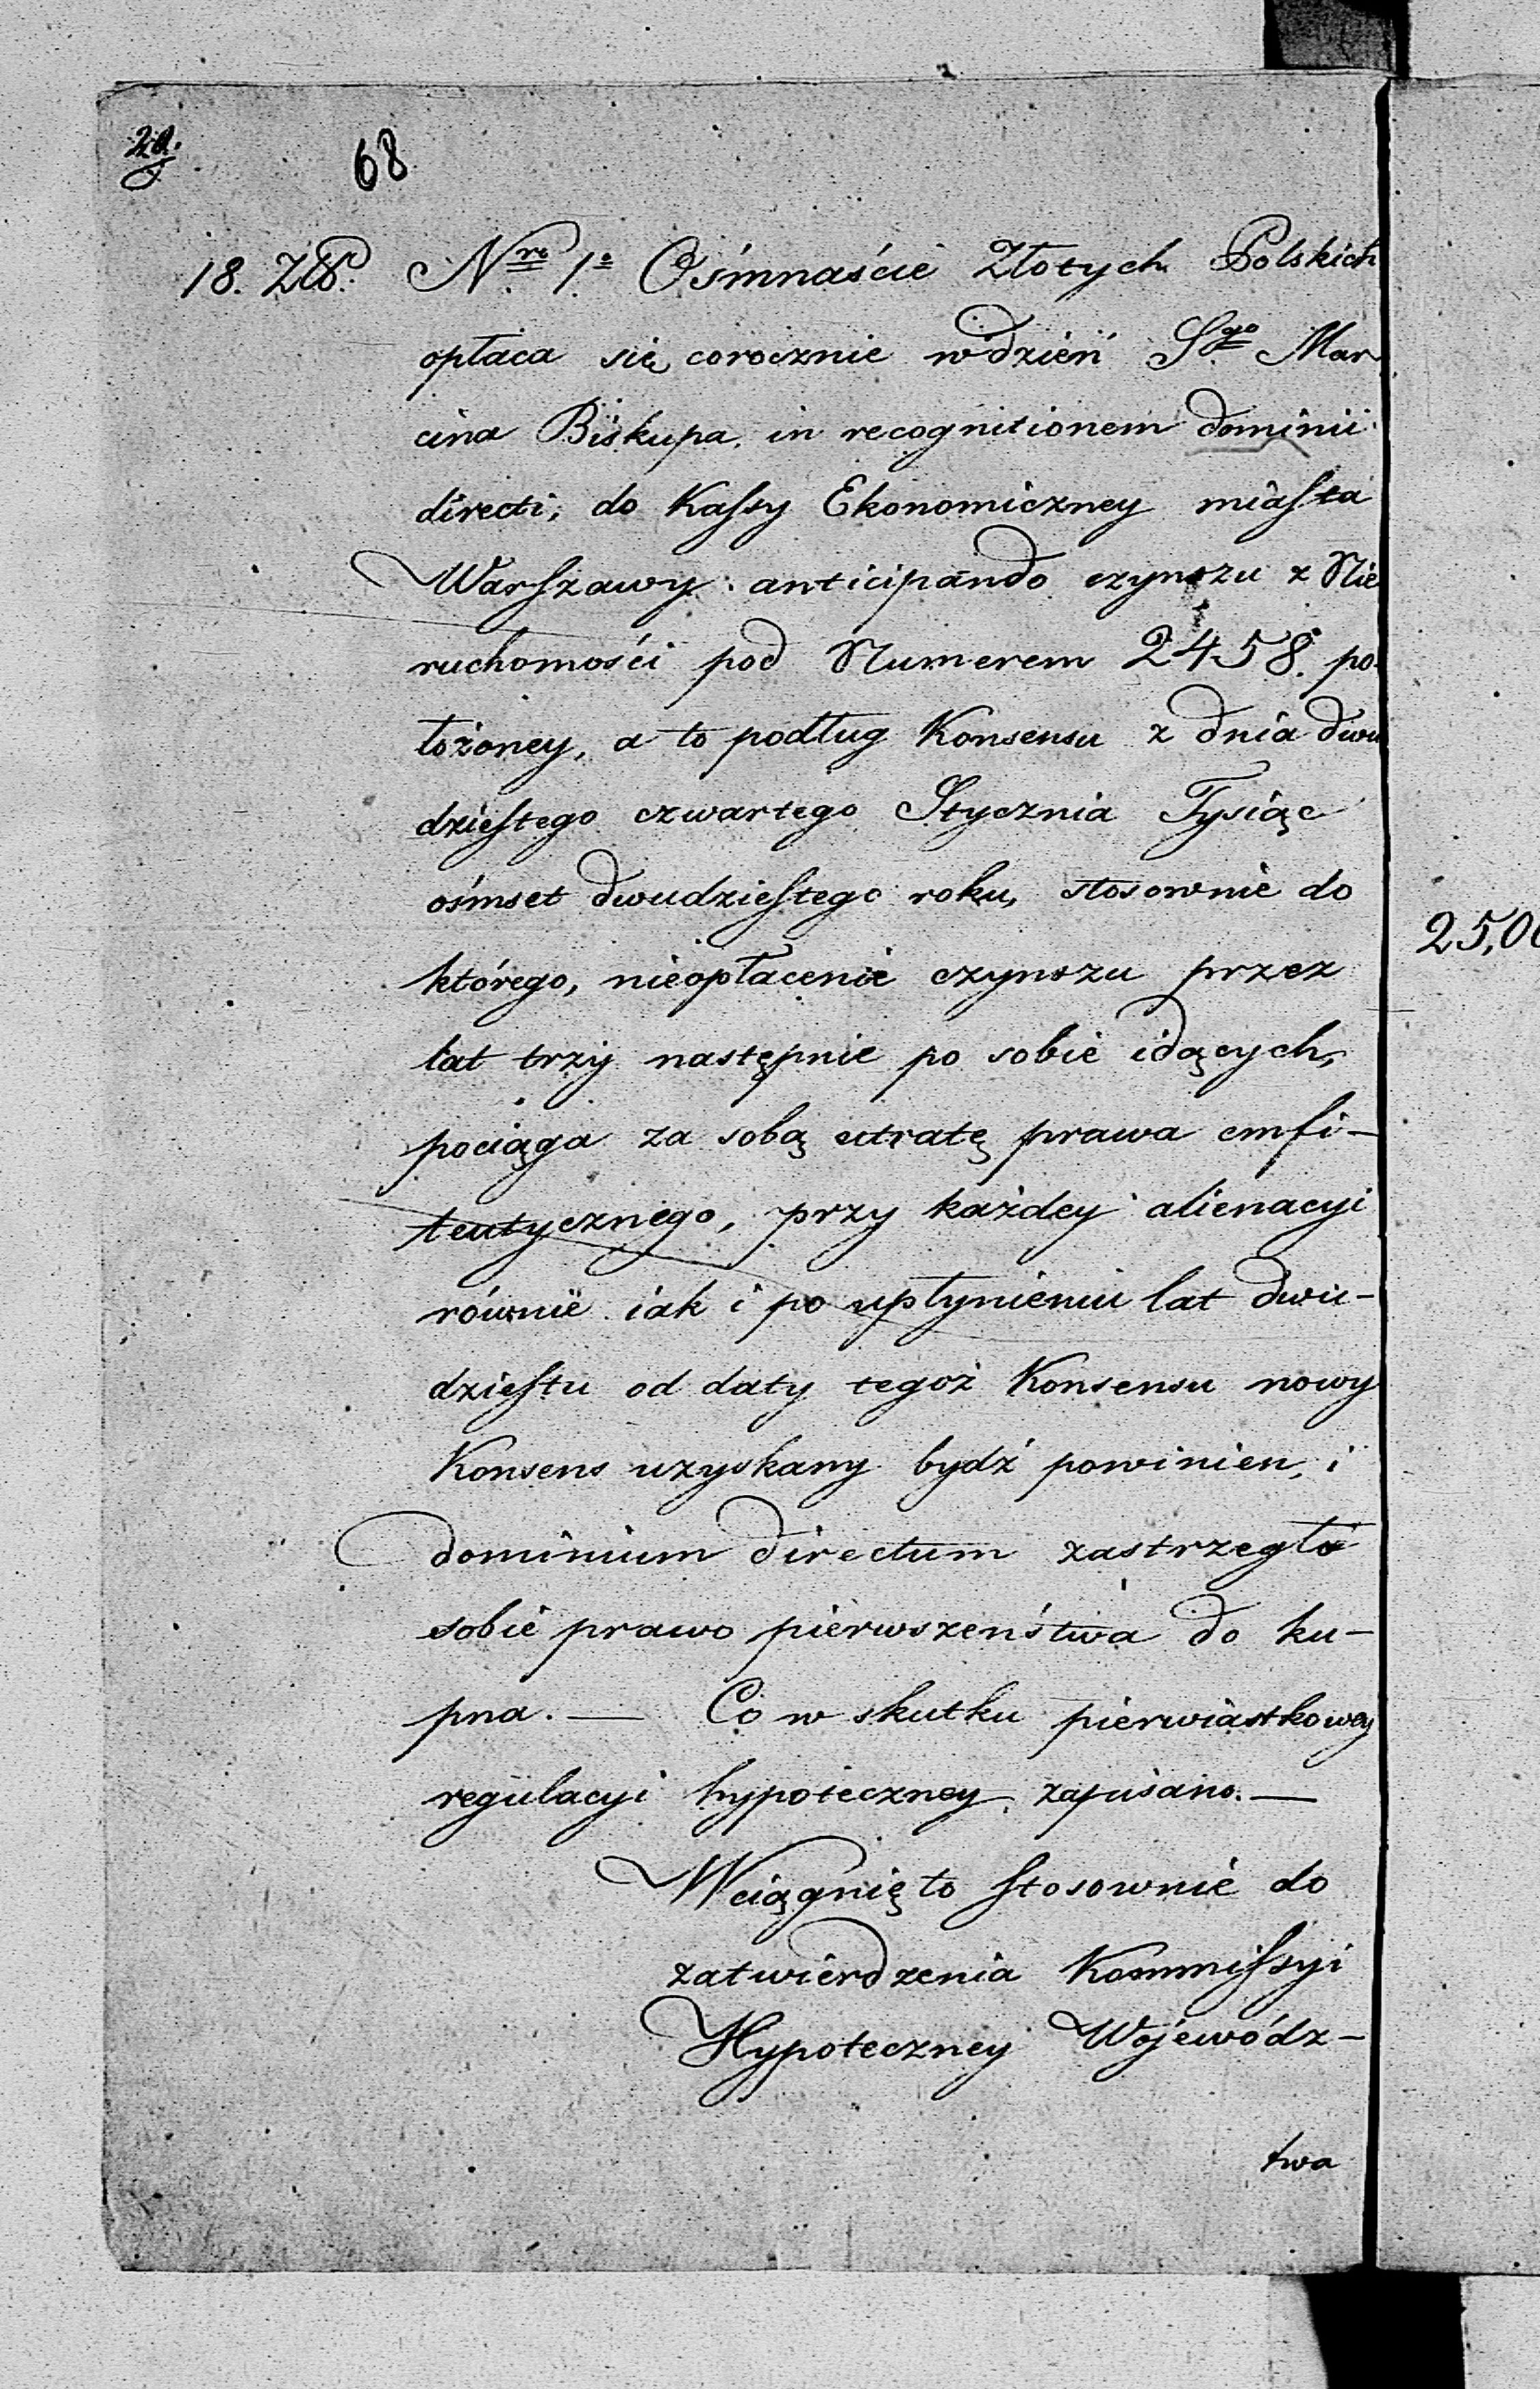 68
18. Złp. Nro 1o Ośmnaście Złotych Polskich
opłaca się corocznie w dzień Sgo Mar
cina Biskupa in recognitionem dominii
directi, do Kassy Ekonomiczney miasta
Warszawy anticipando czynszu z Nie
ruchomości pod Numerem 2458. po
łożoney, a to podług Konsensu z dnia dwu
dziestego czwartego Stycznia Tysiąc
ośmset dwudziestego roku, stosownie do
którego, nieopłacenie czynszu przez
lat trzy następnie po sobie idących,
pociąga za sobą utratę prawa emfi-
teutycznego, przy każdey alienacyi
równie iak i po upłynieniu lat dwu-
dziestu od daty tegoż Konsensu nowy
Konsens uzyskany bydź powinien, i
dominium directum zastrzegło
sobie prawo pierwszeństwa do ku-
pna. — Co w skutku pierwiastkowey
regulacyi hypoteczney zapisano. —
Wciągnięto stosownie do
zatwierdzenia Kommissyi
Hypoteczney Wojewódz-
twa
25,00